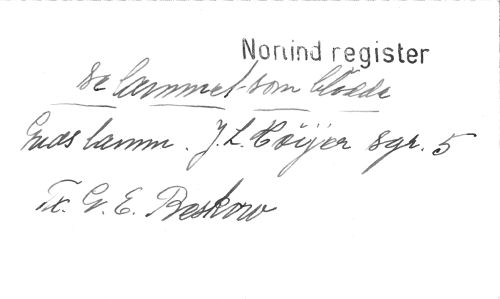 Norlind register
Se lammet som blödde
Guds lamm. J. L. Höijer Sgr. 5
Tx. G. E. Beskow